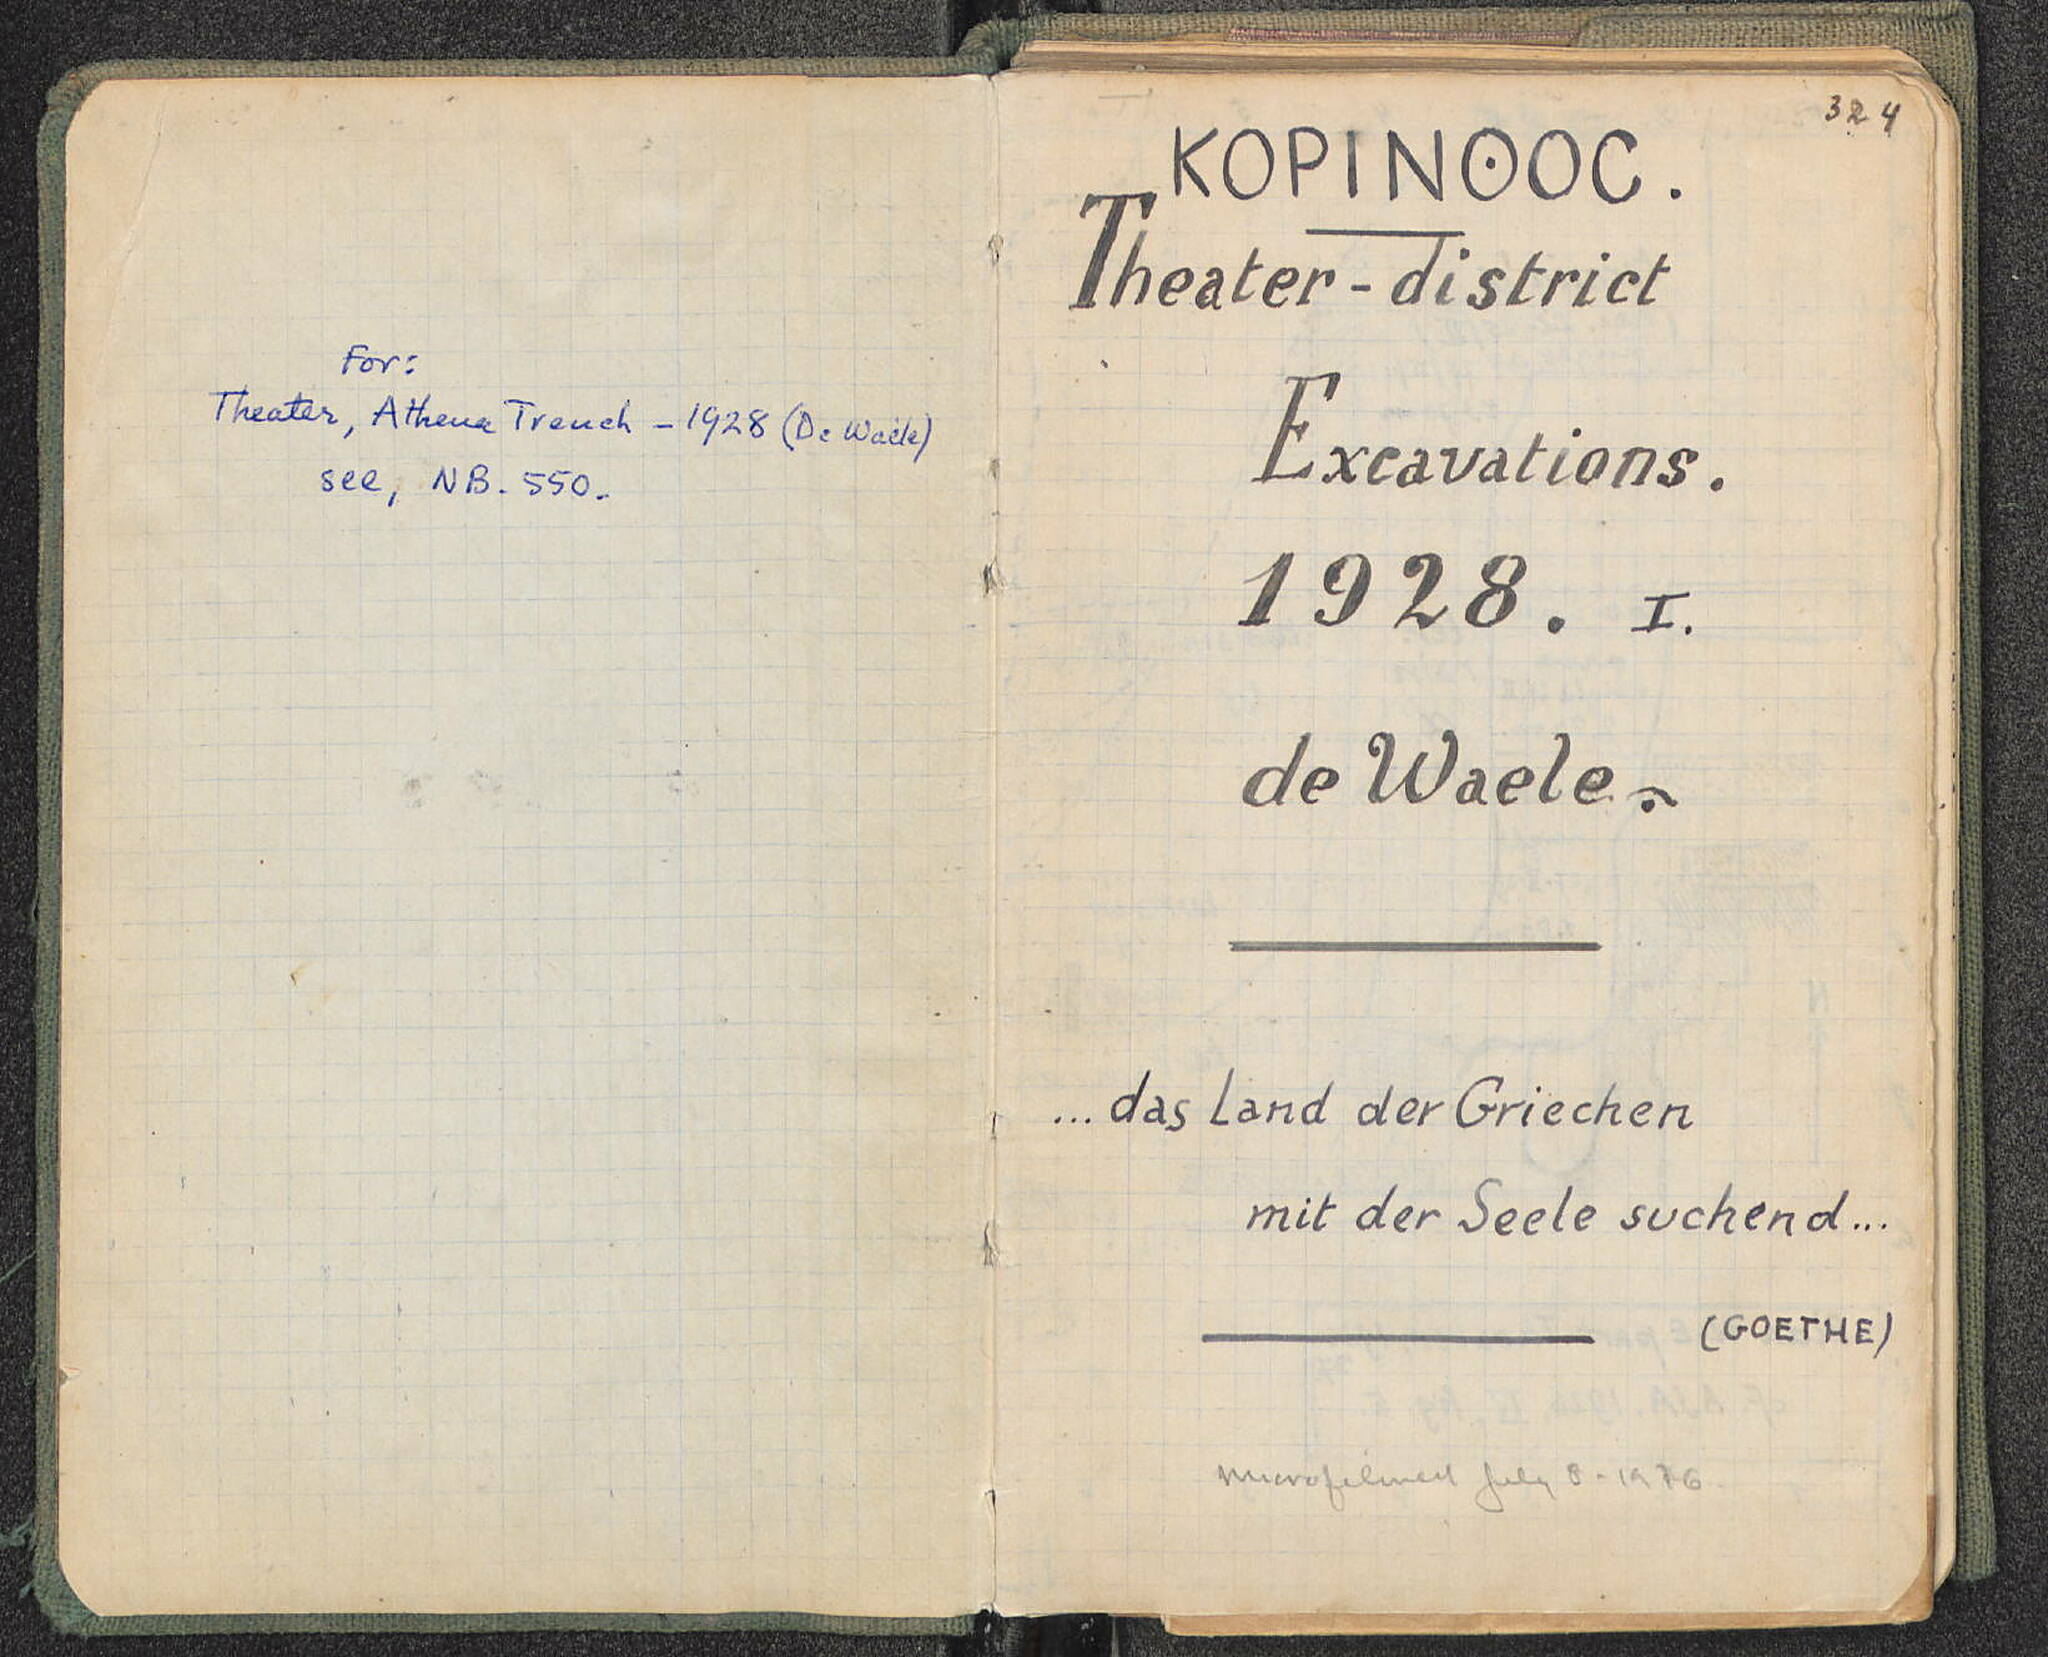 For:
Theater, Athena Trench – 1928 (De Waele)
see, NB. 550.
324
ΚΟΡΙΝΘΟC.
Theater-district
Excavations.
1928. I.
de Waele.
... das Land der Griechen
mit der Seele suchend...
(GOETHE)
Microfilmed July 8 - 1976.